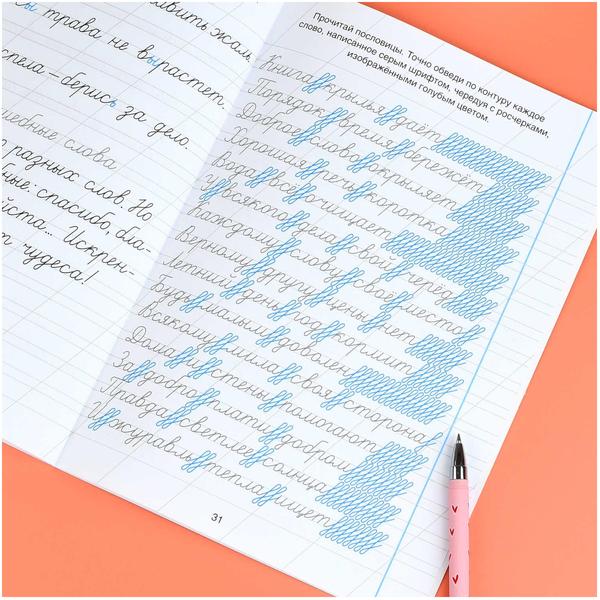 ы трава не вырастет.
спела – берись за дело.
шебные слова
разных слов. Но
ные: спасибо, бла-
йста... Искрен-
т чудеса!
Прочитай пословицы. Точно обведи по контуру каждое
слово, написанное серым шрифтом, чередуя с росчерками,
изображёнными голубым цветом.
Книга крылья даёт
Порядок время бережёт
Доброе слово окрыляет
Хорошая речь коротка
Вода всё очищает
У всякого дела свой черёд
Каждому слову своё место
Верному другу цены нет
Летний день год кормит
Будь малым доволен
Всякому мила своя сторона
Дома и стены помогают
За добро плати добром
Правда светлее солнца
И журавль тепла ищет
31